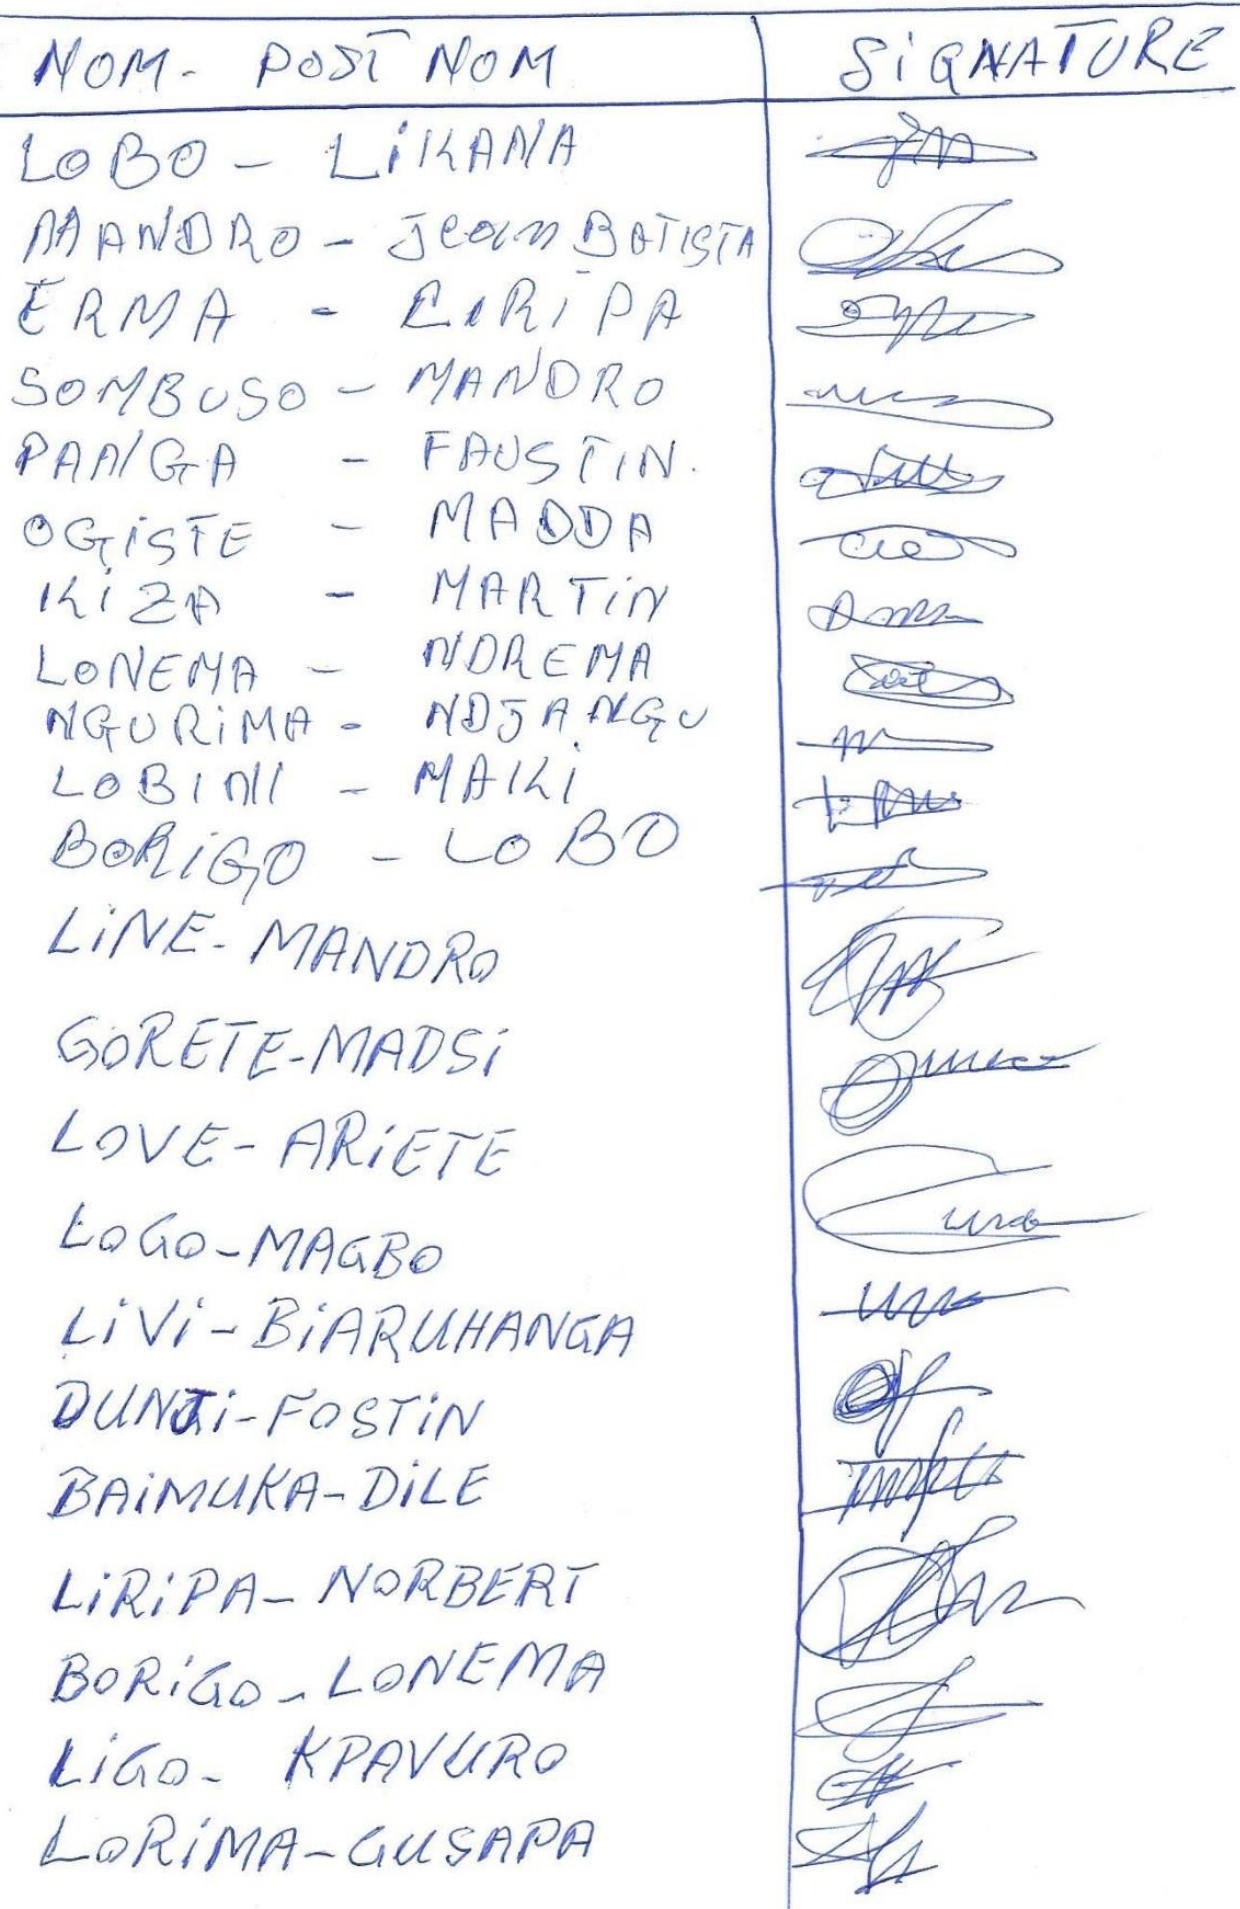 NOM - POST NOM SIGNATURE
LOBO - LIKANA
MANDRO - Jean BATISTA
ERMA - LIRIPA
SOMBUSO - MANDRO
PAANGA - FAUSTIN.
OGISTE - MADDA
KIZA - MARTIN
LONEMA - NDREMA
NGURIMA - NDJANGU
LOBINI - MAIKI
BORIGO - LOBO
LINE - MANDRO
GORETE - MADSI
LOVE - ARIETE
LOGO - MAGBO
LIVI - BIARUHANGA
DUNJI - FOSTIN
BAIMUKA - DILE
LIRIPA - NORBERT
BORIGO - LONEMA
LIGO - KPAVURO
LORIMA - GUSAPA